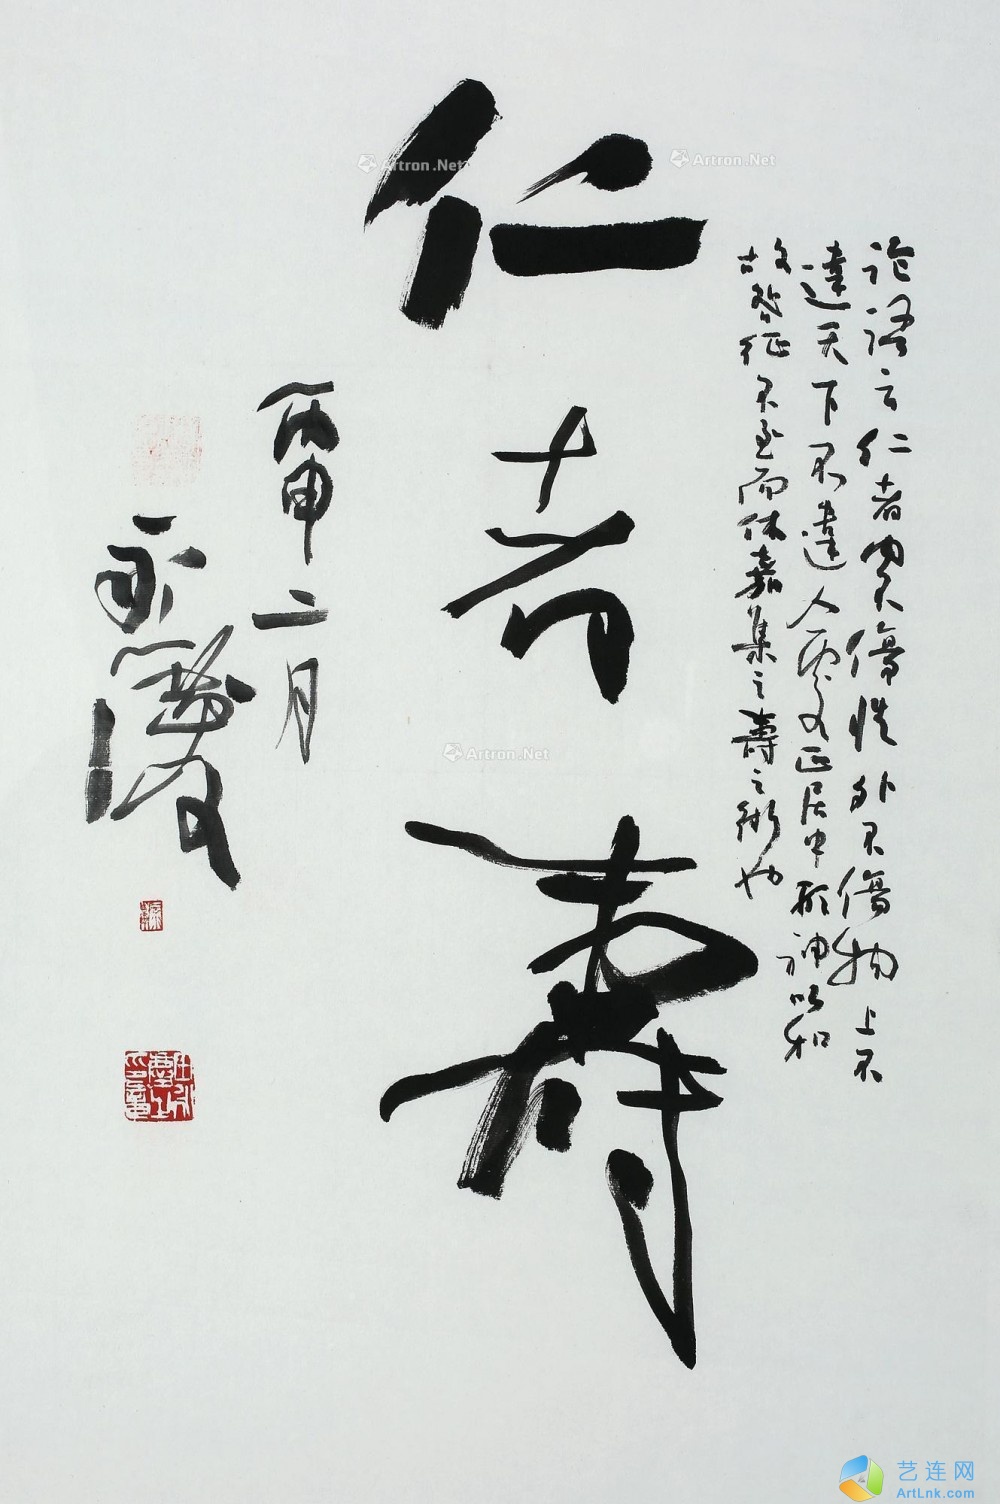 仁者壽
論語言仁者內不傷性外不傷物上不
違天下不違人處正居中形神以和
故咎征不至而休嘉集之壽之術也
丙申二月
永慶
Artron.Net
Artron.Net
Artron.Net
艺连网
ArtLnk.com